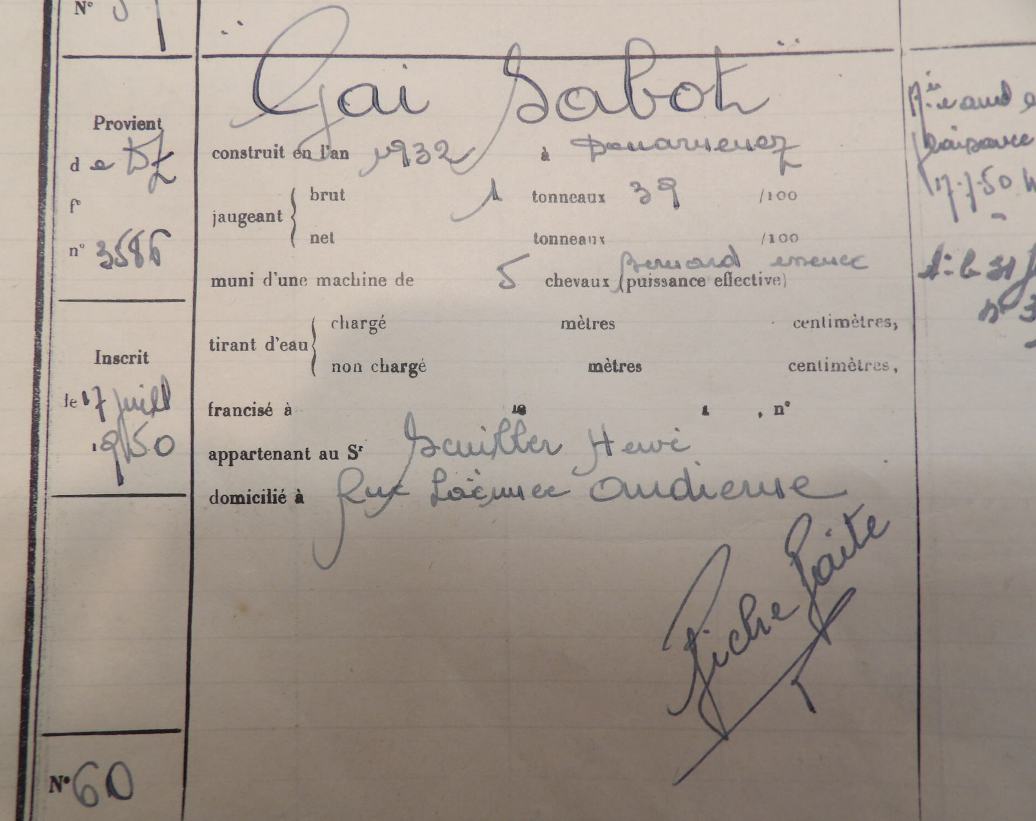 N°
Gai Sabot
Provient
de DZ
f°
n° 3586
Inscrit
le 17 juill
1950
N° 60
construit en l'an 1932 à Douarnenez
jaugeant { brut 1 tonneaux 39 /100
net tonneaux /100
muni d'une machine de 5 chevaux (puissance effective) Bernard essence
tirant d'eau { chargé mètres centimètres,
non chargé mètres centimètres,
francisé à 19 , n°
appartenant au Sr Hervé
domicilié à Rue Laënnec Audierne
Fiche faite
plaisance
17.7.50